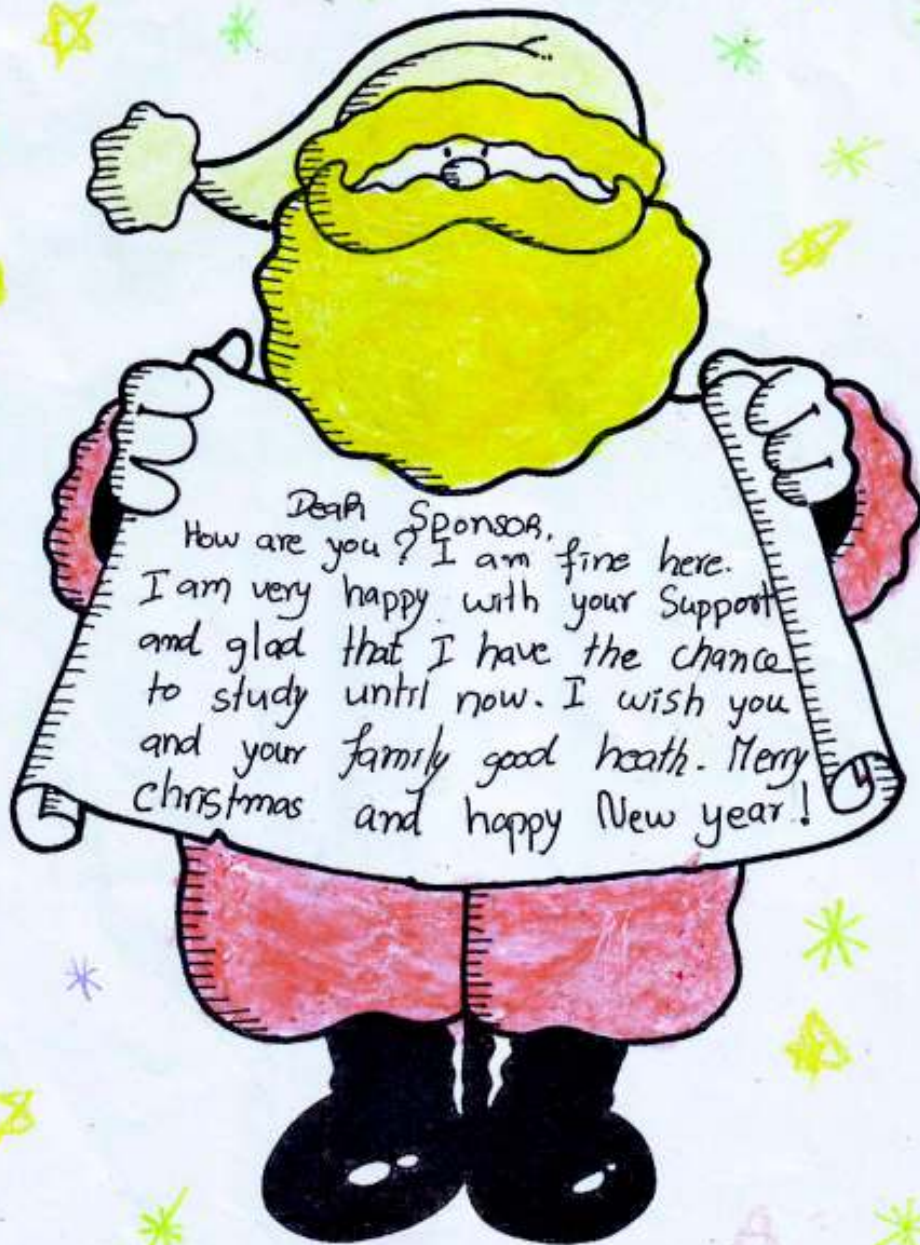 Dear Sponsor,
How are you? I am fine here.
I am very happy with your Support
and glad that I have the chance
to study until now. I wish you
and your family good heath. Merry
christmas and happy New year!